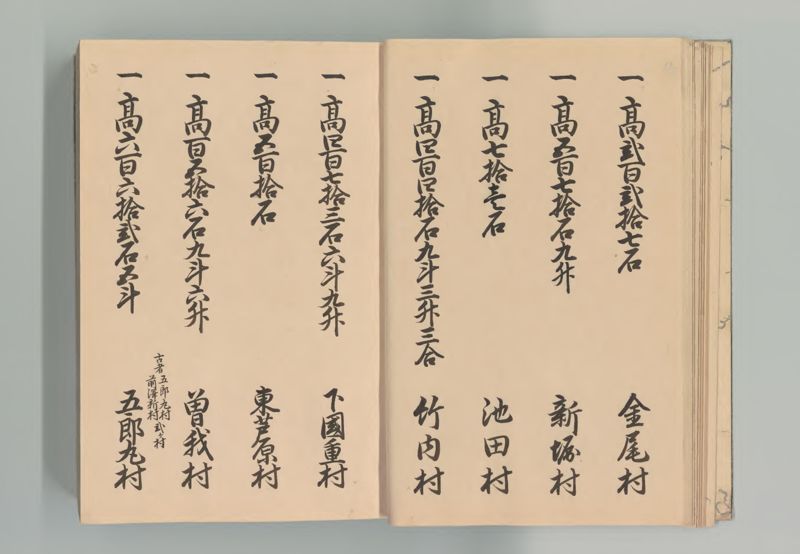 一 高弐百弐拾七石 金尾村
一 高五百七拾石九升 新堀村
一 高七拾壱石 池田村
一 高四百四拾石九斗三升三合 竹内村
一 高四百七拾三石六斗九升 下国重村
一 高五百拾石 東芦原村
一 高百五拾六石九斗六升 曽我村
古者五郎丸村
前澤新村 弐ケ村
一 高六百六拾弐石五斗 五郎丸村